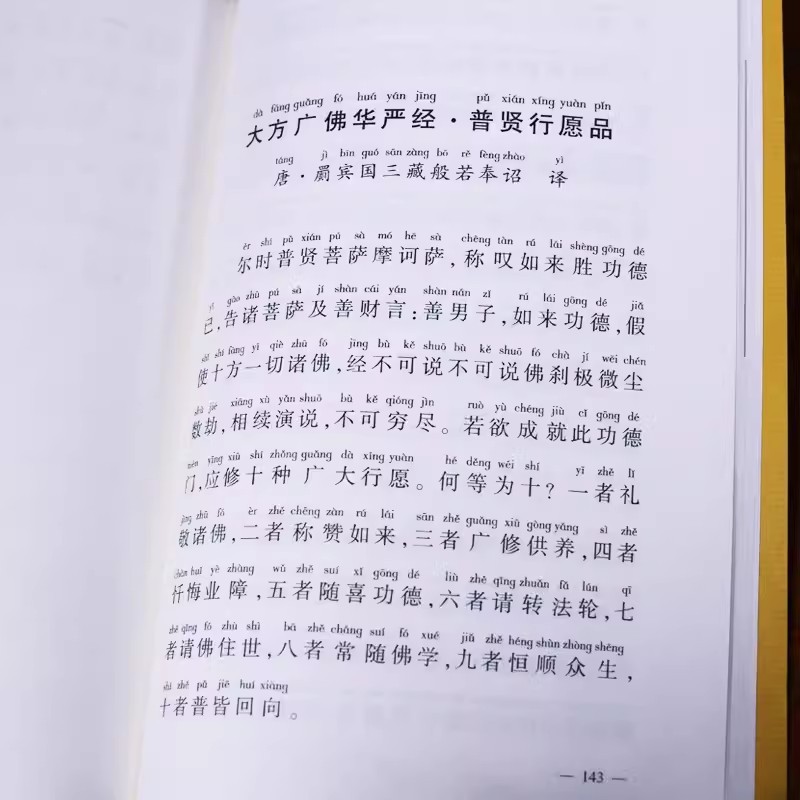 dà fāng guǎng fó huá yán jīng pǔ xián xíng yuàn pǐn
大方广佛华严经·普贤行愿品
táng jì bīn guó sān zàng bō rě fèng zhào yì
唐·罽宾国三藏般若奉诏 译
ěr shí pǔ xián pú sà mó hē sà chēng tàn rú lái shèng gōng dé
尔时普贤菩萨摩诃萨,称叹如来胜功德
yǐ gào zhū pú sà jí shàn cái yán shàn nán zǐ rú lái gōng dé jiǎ
已,告诸菩萨及善财言:善男子,如来功德,假
shǐ shí fāng yí qiè zhū fó jīng bù kě shuō bù kě shuō fó chà jí wēi chén
使十方一切诸佛,经不可说不可说佛刹极微尘
shù jié xiāng xù yǎn shuō bù kě qióng jìn ruò yù chéng jiù cǐ gōng dé
数劫,相续演说,不可穷尽。若欲成就此功德
mén yīng xiū shí zhǒng guǎng dà xíng yuàn hé děng wéi shí yī zhě lǐ
门,应修十种广大行愿。何等为十?一者礼
jìng zhū fó èr zhě chēng zàn rú lái sān zhě guǎng xiū gòng yǎng sì zhě
敬诸佛,二者称赞如来,三者广修供养,四者
chàn huǐ yè zhàng wǔ zhě suí xǐ gōng dé liù zhě qǐng zhuǎn fǎ lún qī
忏悔业障,五者随喜功德,六者请转法轮,七
zhě qǐng fó zhù shì bā zhě cháng suí fó xué jiǔ zhě héng shùn zhòng shēng
者请佛住世,八者常随佛学,九者恒顺众生,
shí zhě pǔ jiē huí xiàng
十者普皆回向。
— 143 —